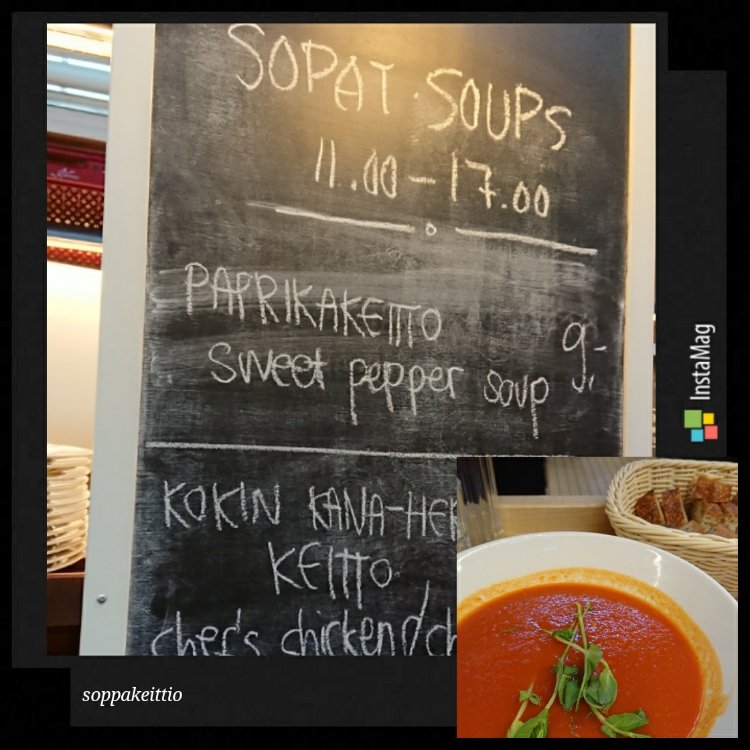 SOPAT · SOUPS
11.00 - 17.00
PAPRIKAKEITTO
Sweet pepper soup 9,-
KOKIN KANA-
KEITTO
chef's chicken
InstaMag
soppakeittio